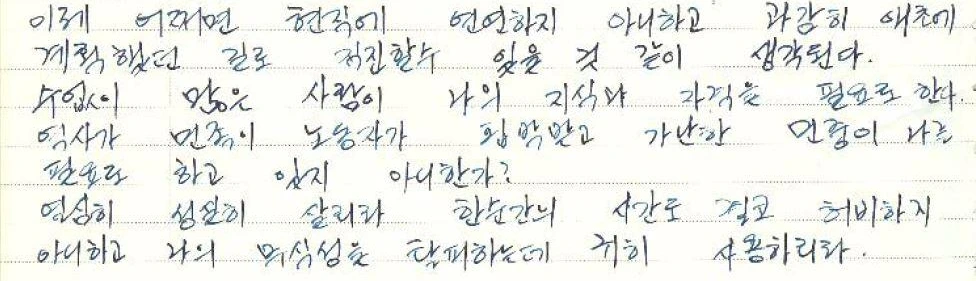 이제 어쩌면 현직에 연연하지 아니하고 과감히 애초에
계획했던 길로 직진할수 있을 것 같이 생각된다.
수없이 많은 사람이 나의 지식과 자격을 필요로 한다.
역사가 민족이 노동자가 핍박받고 가난한 민중이 나를
필요로 하고 있지 아니한가?
열심히 성실히 살리라 한순간의 시간도 결코 허비하지
아니하고 나의 무식성을 탈피하는데 귀히 사용하리라.